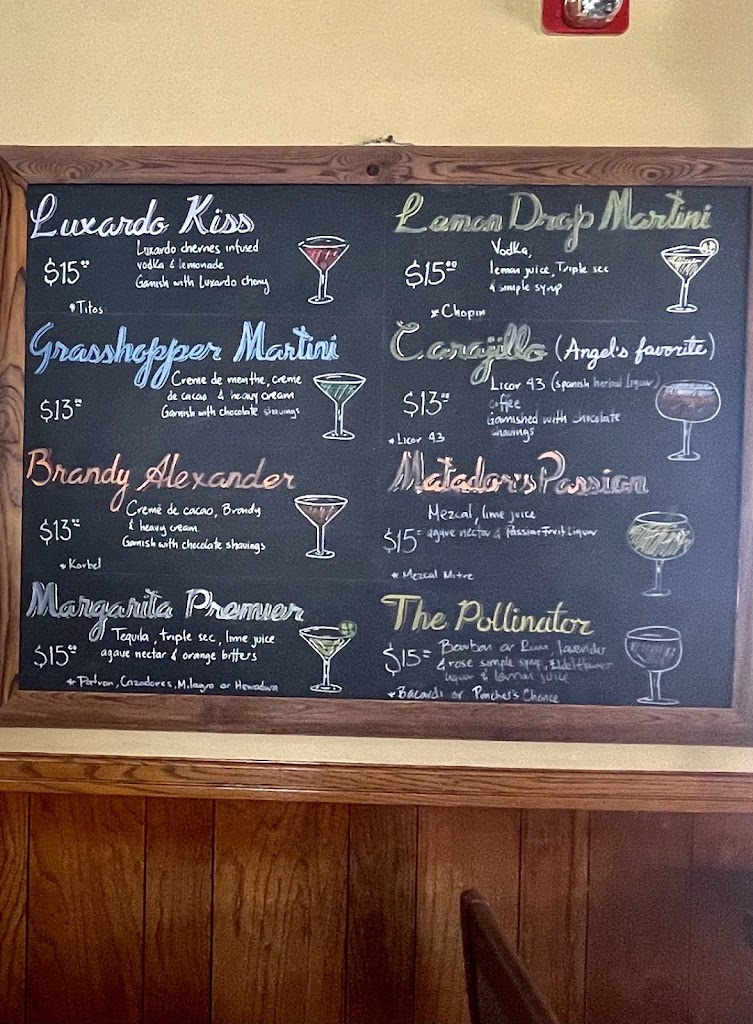 Luxardo Kiss
Luxardo cherries infused
vodka & lemonade
Garnish with Luxardo cherry
$15.00
*Titos
Grasshopper Martini
Creme de menthe, creme
de cacao & heavy cream
Garnish with chocolate shavings
$13.00
Brandy Alexander
Cremé de cacao, Brandy
& heavy cream
Garnish with chocolate shavings
$13.00
*Korbel
Margarita Premier
Tequila, triple sec, lime juice
agave nectar & orange bitters
$15.00
*Patron, Cazadores, Milagro or Herradura
Lemon Drop Martini
Vodka,
lemon juice, Triple sec
& simple syrup
$15.00
*Chopin
Carajillo (Angel's favorite)
Licor 43 (spanish herbal liquor)
coffee
Garnished with chocolate
shavings
$13.00
*Licor 43
Matador's Passion
Mezcal, lime juice
agave nectar & Passion Fruit Liquor
$15
*Mezcal Mitre
The Pollinator
Bourbon or Rum, lavender
& rose simple syrup, Elderflower
liquor & lemon juice
$15
*Bacardi or Pincher's Chance